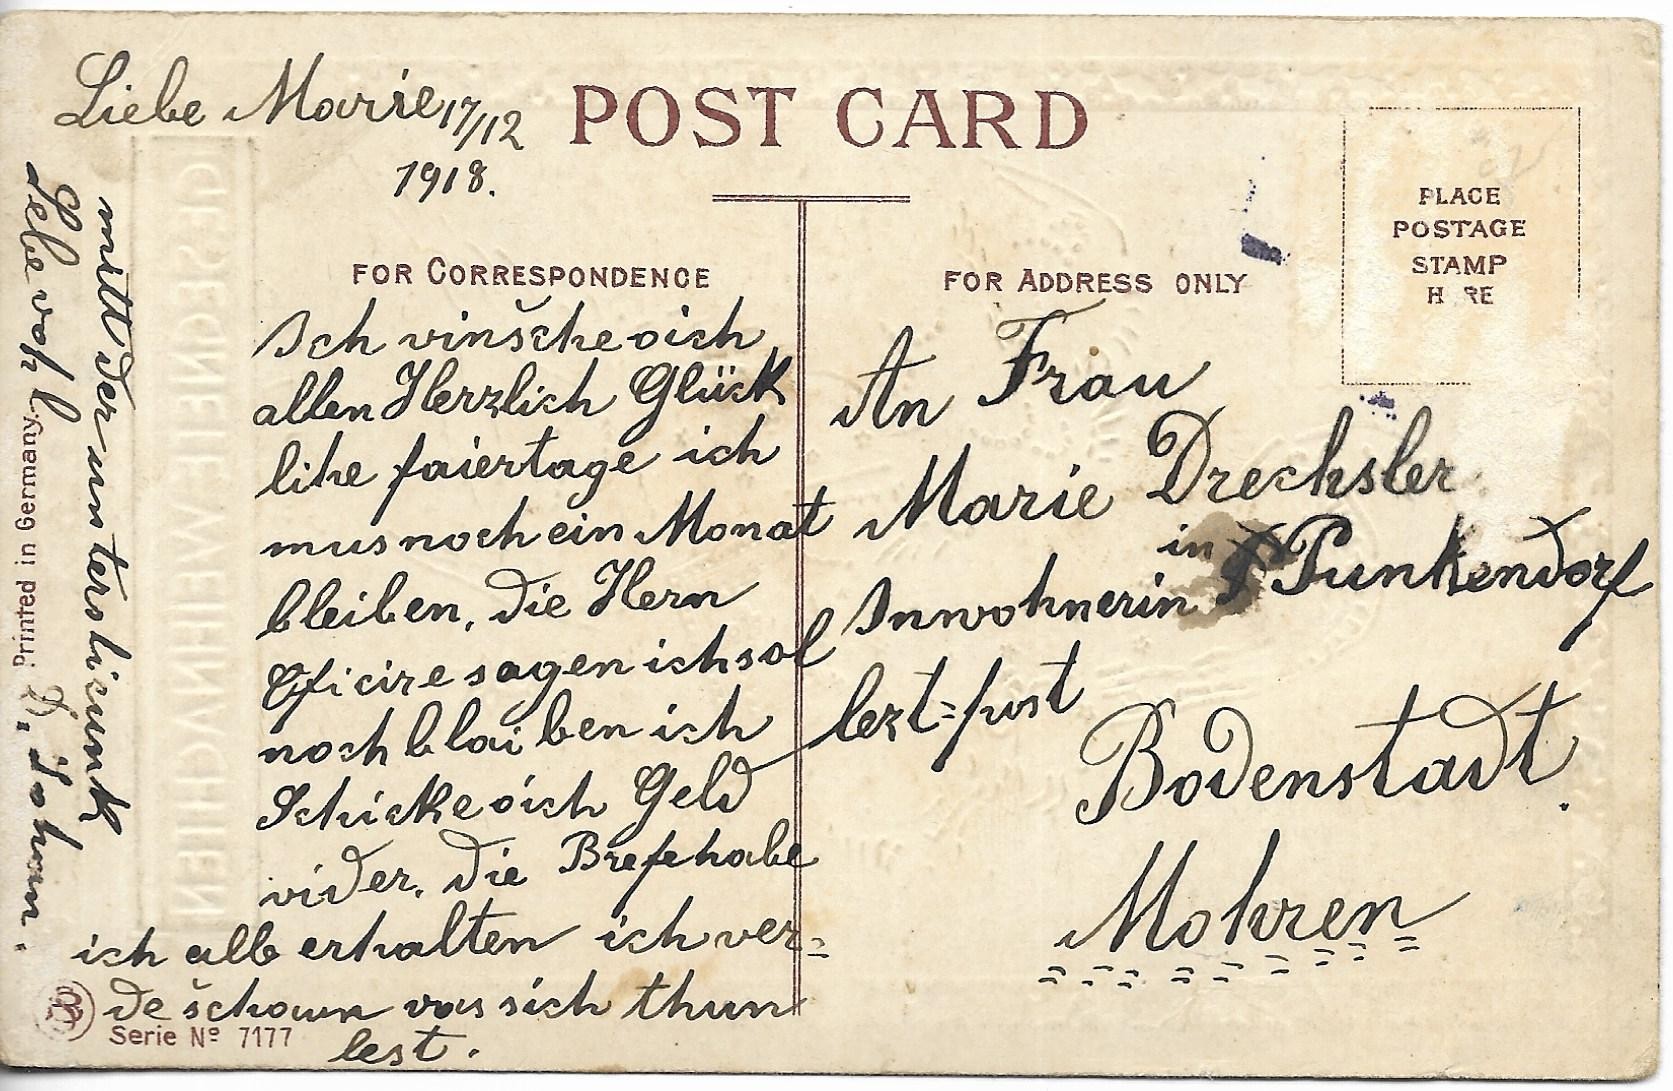 Liebe Marie 17/12
1918.
POST CARD
FOR CORRESPONDENCE
Ich vinšche oich
allen Herzlich Glück
lihe faiertage ich
mus noch ein Monat
bleiben, die Hern
Oficire sagen ich sol
noch blaiben ich
Schicke oich Geld
vider. die Brefe habe
ich alle erhalten ich ver=
de schaun vas sich thun
lest.
mitt der unterslicunk
Lebe vohl
D, Johan.
FOR ADDRESS ONLY
PLACE
POSTAGE
STAMP
H RE
An Frau
Marie Drechsler
in
Inwohnerin Punkendorf
lezt=post
Bodenstadt.
Mohren
Printed in Germany.
Serie Nº 7177
GESEGNETE WEIHNACHTEN